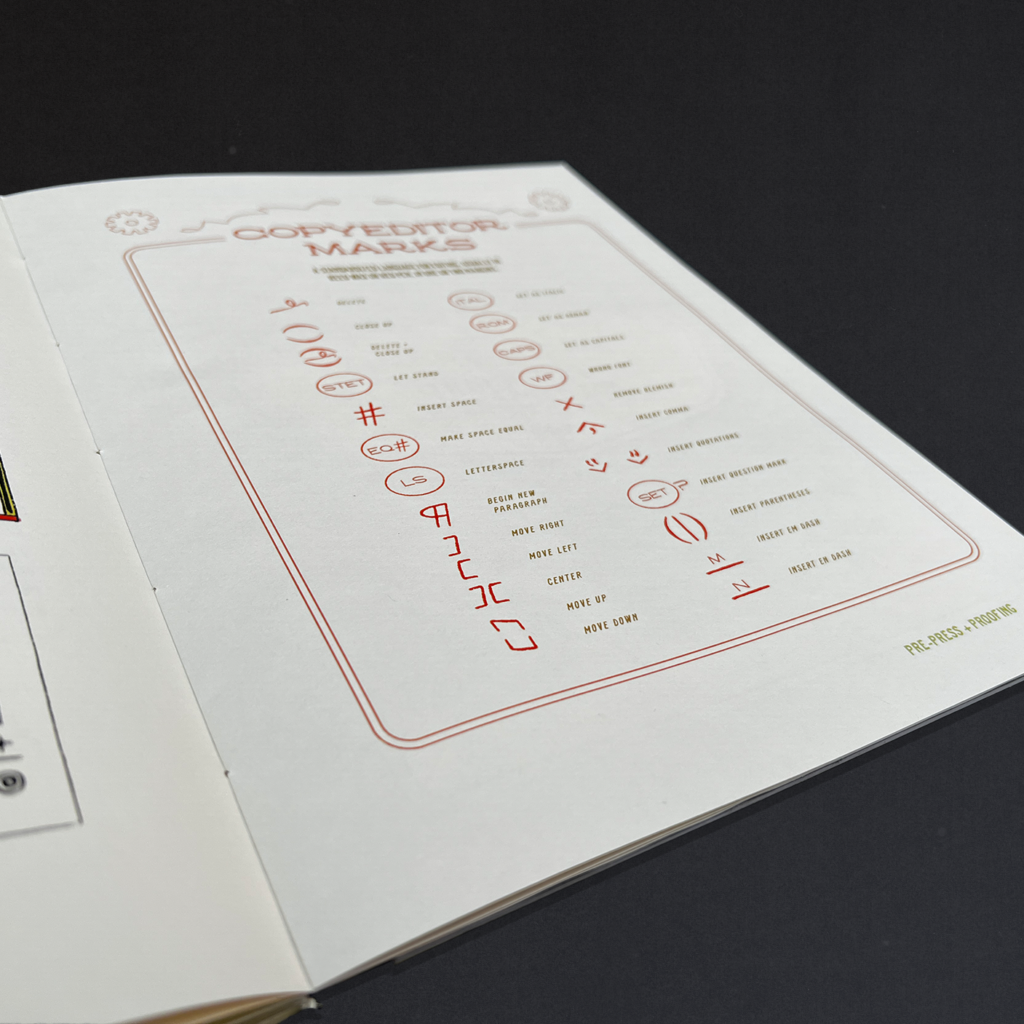 COPYEDITOR
MARKS
DELETE
CLOSE UP
DELETE +
CLOSE UP
STET LET STAND
# INSERT SPACE
EQ# MAKE SPACE EQUAL
LS LETTERSPACE
¶ BEGIN NEW
PARAGRAPH
] MOVE RIGHT
[ MOVE LEFT
][ CENTER
MOVE UP
MOVE DOWN
ITAL SET AS ITALIC
ROM SET AS ROMAN
CAPS SET AS CAPITALS
WF WRONG FONT
X REMOVE BLEMISH
INSERT COMMA
INSERT QUOTATIONS
SET ? INSERT QUESTION MARK
(|) INSERT PARENTHESES
M INSERT EM DASH
N INSERT EN DASH
PRE-PRESS + PROOFING